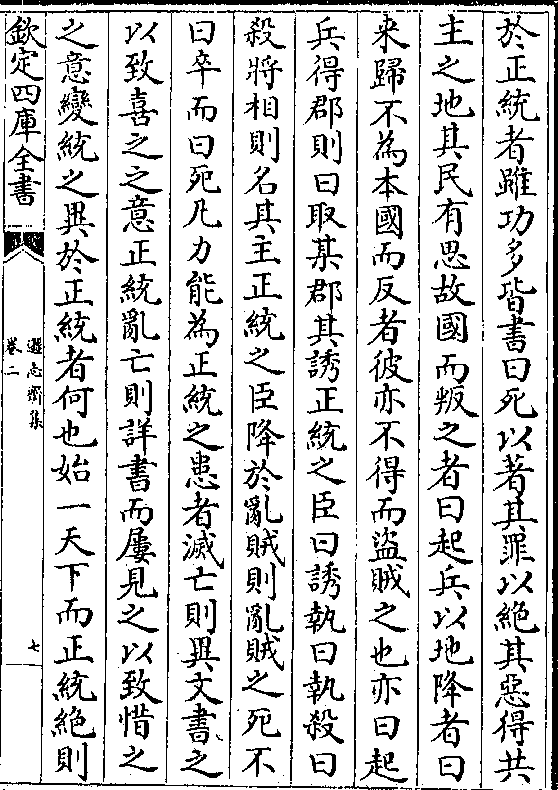 於正統者雖功多皆書曰死以著其罪以絶其惡得共
主之地其民有思故國而叛之者曰起兵以地降者曰
来歸不為本國而反者彼亦不得而盜賊之也亦曰起
兵得郡則曰取某郡其誘正統之臣曰誘執曰執殺曰
殺將相則名其主正統之臣降於亂賊則亂賊之死不
曰卒而曰死凡力能為正統之患者滅亡則異文書之
以致喜之之意正統亂亡則詳書而屢見之以致惜之
之意變統之異於正統者何也始一天下而正統絶則
欽定四庫全書
遜志齋集
卷二
七